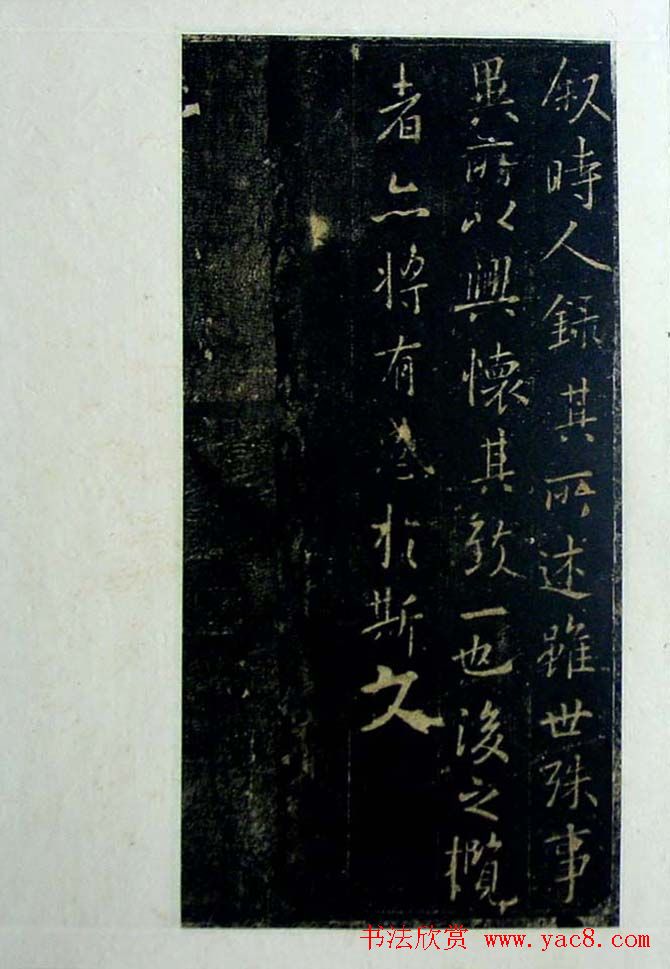 叙時人録其所述雖世殊事
異所以興懷其致一也後之攬
者亦將有感於斯文
书法欣赏 www.yac8.com